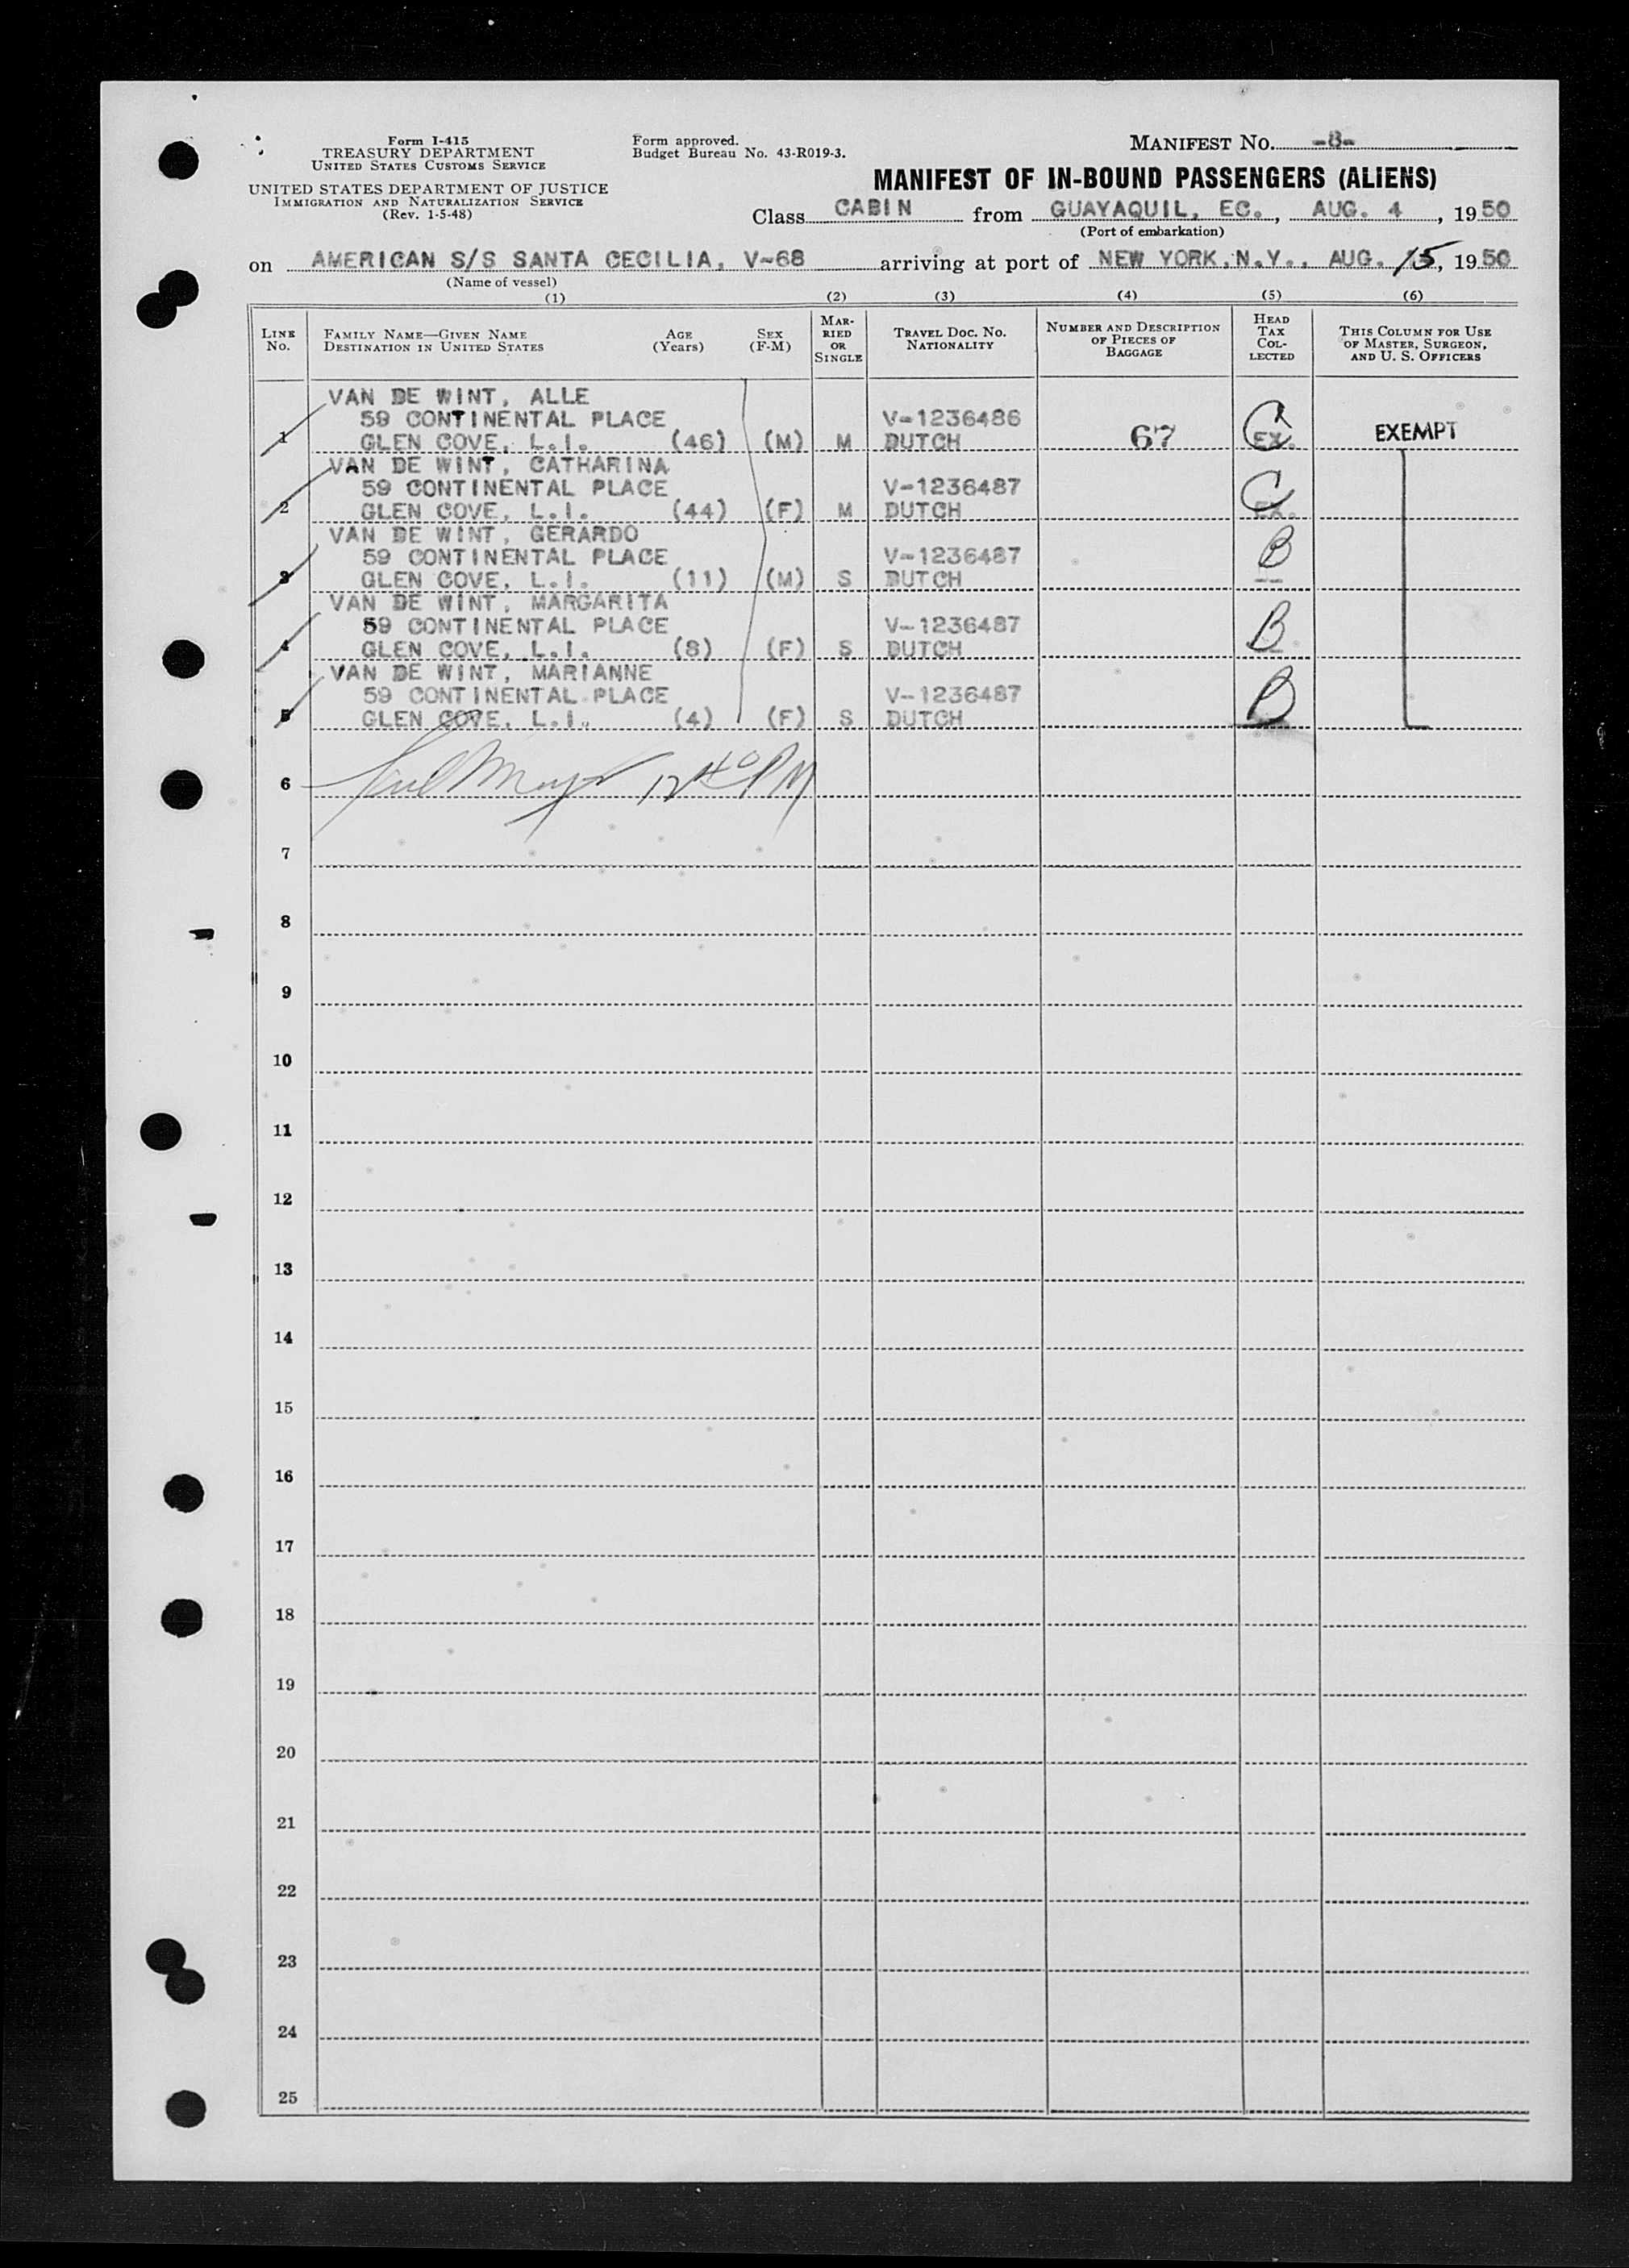 Form I-415
TREASURY DEPARTMENT
UNITED STATES CUSTOMS SERVICE
UNITED STATES DEPARTMENT OF JUSTICE
IMMIGRATION AND NATURALIZATION SERVICE
(Rev. 1-5-48)
Form approved.
Budget Bureau No. 43-R019-3.
MANIFEST No. -8-
MANIFEST OF IN-BOUND PASSENGERS (ALIENS)
Class CABIN from GUAYAQUIL, EC., AUG. 4, 1950
(Port of embarkation)
on AMERICAN S/S SANTA CECILIA, V-68 arriving at port of NEW YORK, N.Y., AUG. 15, 1950
(Name of vessel)
(1) (2) (3) (4) (5) (6)
LINE No.
FAMILY NAME—GIVEN NAME
DESTINATION IN UNITED STATES
AGE (Years)
SEX (F-M)
MARRIED OR SINGLE
TRAVEL DOC. NO.
NATIONALITY
NUMBER AND DESCRIPTION
OF PIECES OF
BAGGAGE
HEAD
TAX
COL-
LECTED
THIS COLUMN FOR USE
OF MASTER, SURGEON,
AND U. S. OFFICERS
VAN DE WINT, ALLE
59 CONTINENTAL PLACE V-1236486
1 GLEN COVE, L.I. (46) (M) M DUTCH 67 EX. EXEMPT
VAN DE WINT, CATHARINA
59 CONTINENTAL PLACE V-1236487
2 GLEN COVE, L.I. (44) (F) M DUTCH C EX.
VAN DE WINT, GERARDO
59 CONTINENTAL PLACE V-1236487
3 GLEN COVE, L.I. (11) (M) S DUTCH B --
VAN DE WINT, MARGARITA
59 CONTINENTAL PLACE V-1236487
4 GLEN COVE, L.I. (8) (F) S DUTCH B
VAN DE WINT, MARIANNE
59 CONTINENTAL PLACE V-1236487
5 GLEN COVE, L.I. (4) (F) S DUTCH B
6 PM
7
8
9
10
11
12
13
14
15
16
17
18
19
20
21
22
23
24
25